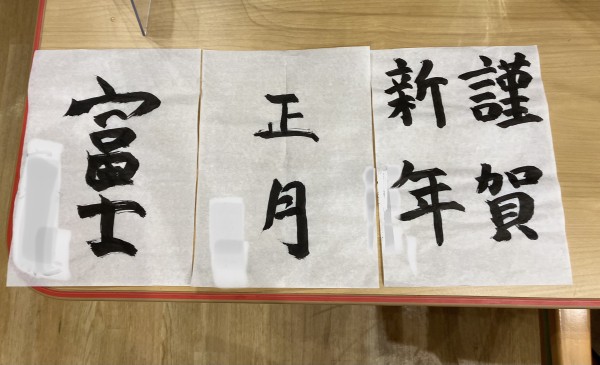 謹賀
新年
正月
富士